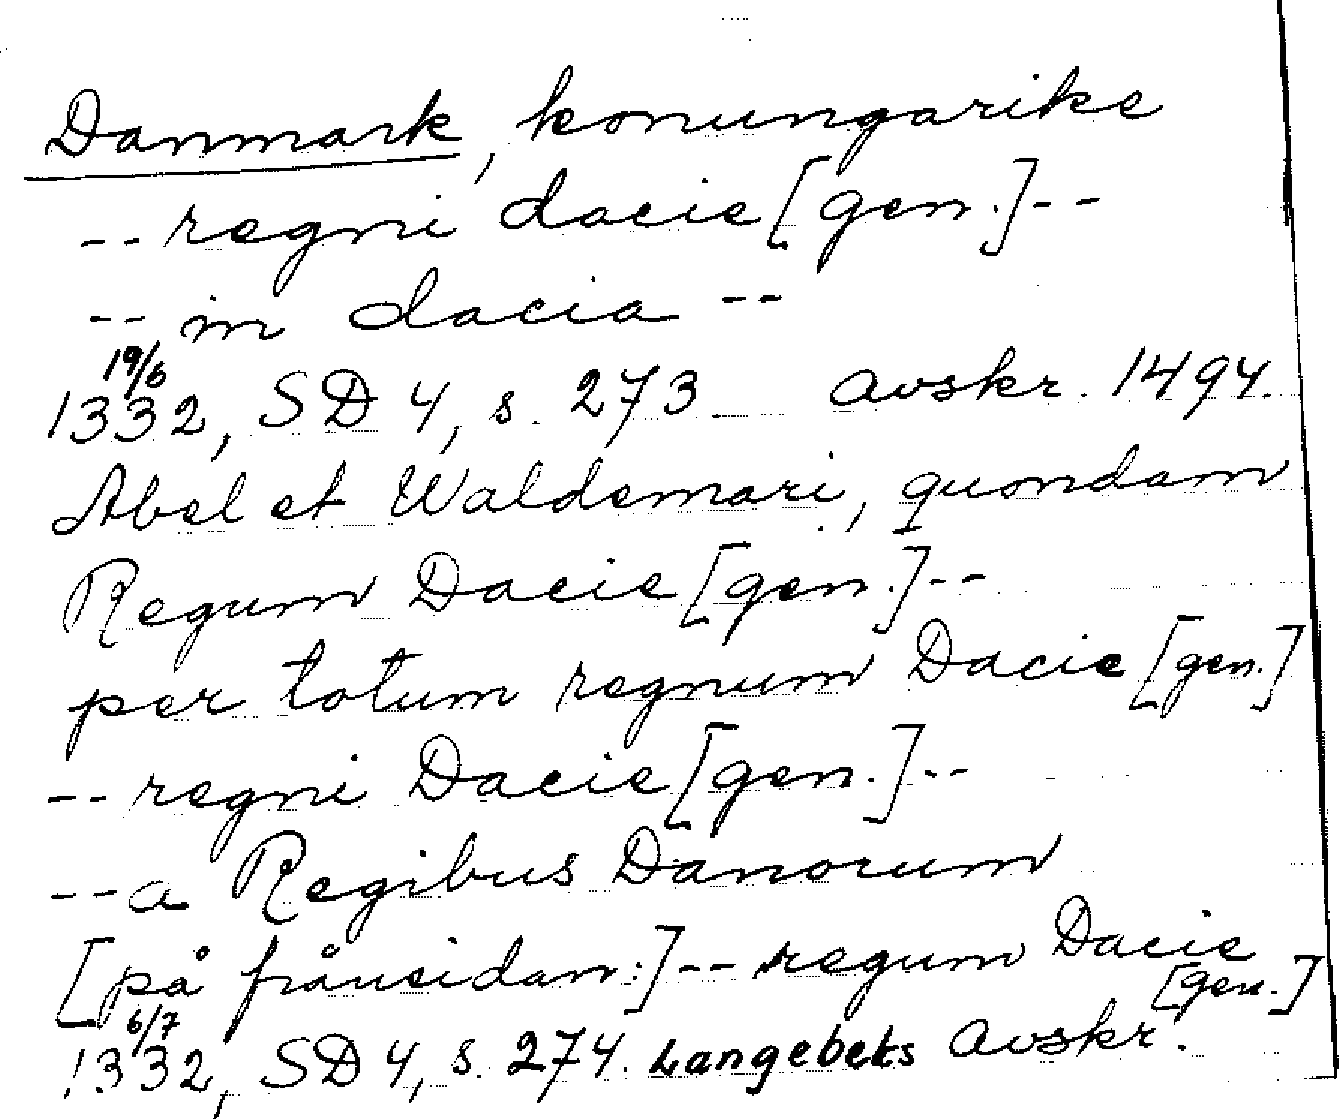 Danmark, konungarike
-- regni dacie [gen.] --
-- in dacia --
19/6
1332, SD 4, s. 273 avskr. 1494.
Abel et Waldemari, quondam
Regum Dacie [gen.] --
per totum regnum Dacie [gen.]
-- regni Dacie [gen.] --
-- a Regibus Danorum
[på frånsidan:] -- regum Dacie
[gen.]
6/7
1332, SD 4, s. 274. Langebeks avskr.